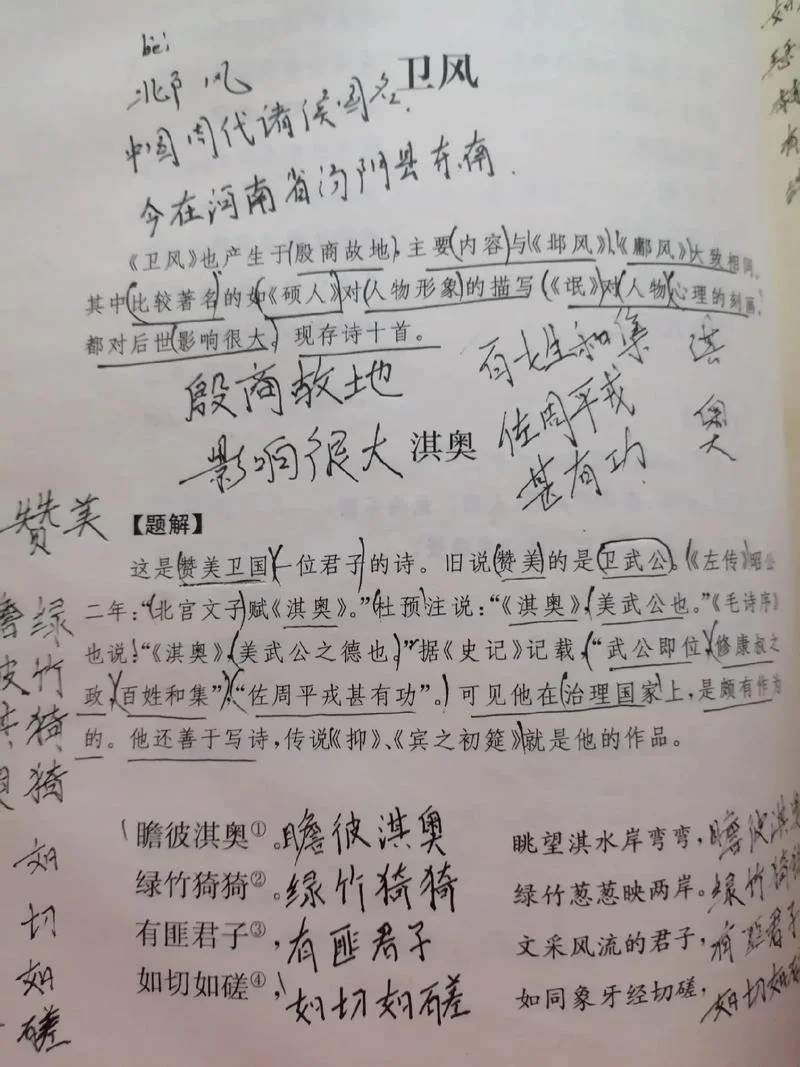 bèi
邶风
卫风
中国周代诸侯国名.
今在河南省汤阴县东南.
《卫风》也产生于殷商故地,主要内容与《邶风》、《鄘风》大致相同。
其中比较著名的如《硕人》对人物形象的描写,《氓》对人物心理的刻画,
都对后世影响很大。现存诗十首。
殷商故地
百姓和集
淇
奥
影响很大
淇奥
佐周平戎
甚有功
赞美
【题解】
这是赞美卫国一位君子的诗。旧说赞美的是卫武公。《左传》昭公
二年:“北宫文子赋《淇奥》。”杜预注说:“《淇奥》,美武公也。”《毛诗序》
也说:“《淇奥》,美武公之德也。”据《史记》记载,“武公即位,修康叔之
政,百姓和集”,“佐周平戎甚有功”。可见他在治理国家上,是颇有作为
的。他还善于写诗,传说《抑》、《宾之初筵》就是他的作品。
绿
竹
猗
猗
如
切
如
磋
瞻彼淇奥①,瞻彼淇奥
眺望淇水岸弯弯,瞻彼淇奥
绿竹猗猗②。绿竹猗猗
绿竹葱葱映两岸。绿竹猗猗
有匪君子③,有匪君子
文采风流的君子,有匪君子
如切如磋④,如切如磋
如同象牙经切磋,如切如磋